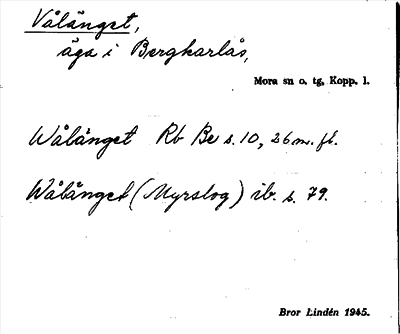 Vålänget,
äga i Bergkarlås,
Mora sn o. tg, Kopp. l.
Wålänget Rb Be s. 10, 26 m. fl.
Wålänget (Myrslog) ib. s. 79.
Bror Lindén 1945.